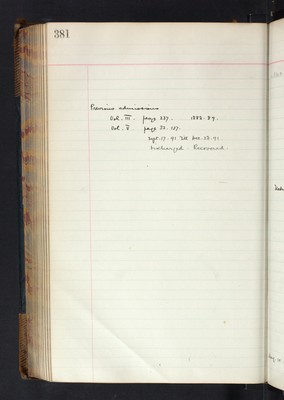 381
Previous admissions
Vol. III. page 237. 1888-89.
Vol. V. page 32. 187.
Sept. 17. 91 till Dec. 23. 91.
Discharged Recovered